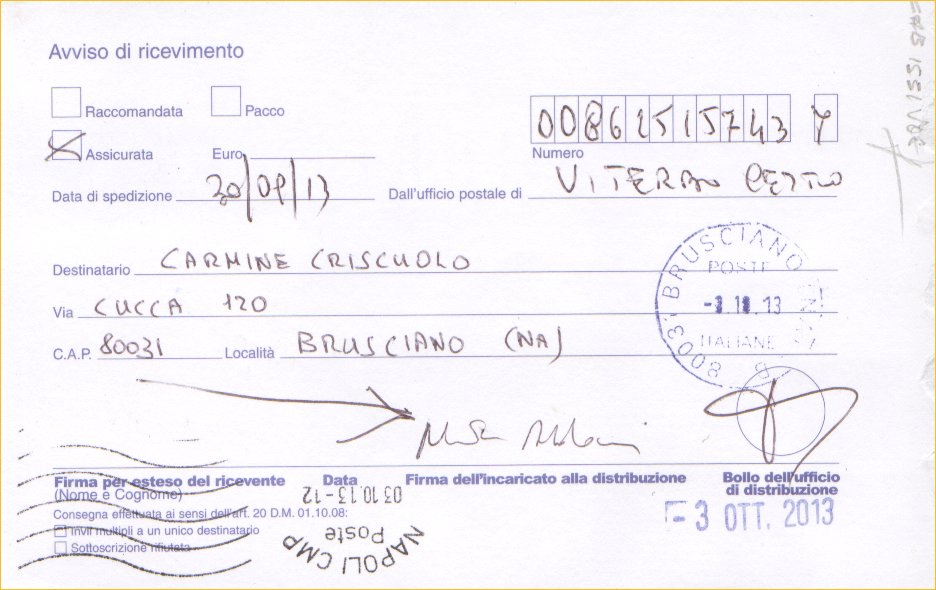 Avviso di ricevimento
Raccomandata Pacco
Assicurata Euro
00862515743 Y
Numero
Data di spedizione 30/09/13 Dall'ufficio postale di VITERBO
Destinatario CARMINE CRISCUOLO
Via CUCCA 120
C.A.P. 80031 Località BRUSCIANO (NA)
80031 BRUSCIANO
POSTE
13
ITALIANE
Firma per esteso del ricevente Data Firma dell'incaricato alla distribuzione Bollo dell'ufficio
(Nome e Cognome) di distribuzione
Consegna effettuata ai sensi dell'art. 20 D.M. 01.10.08:
Invii multipli a un unico destinatario
Sottoscrizione rifiutata
03.10.13-12
Poste
NAPOLI CMP
-3 OTT. 2013